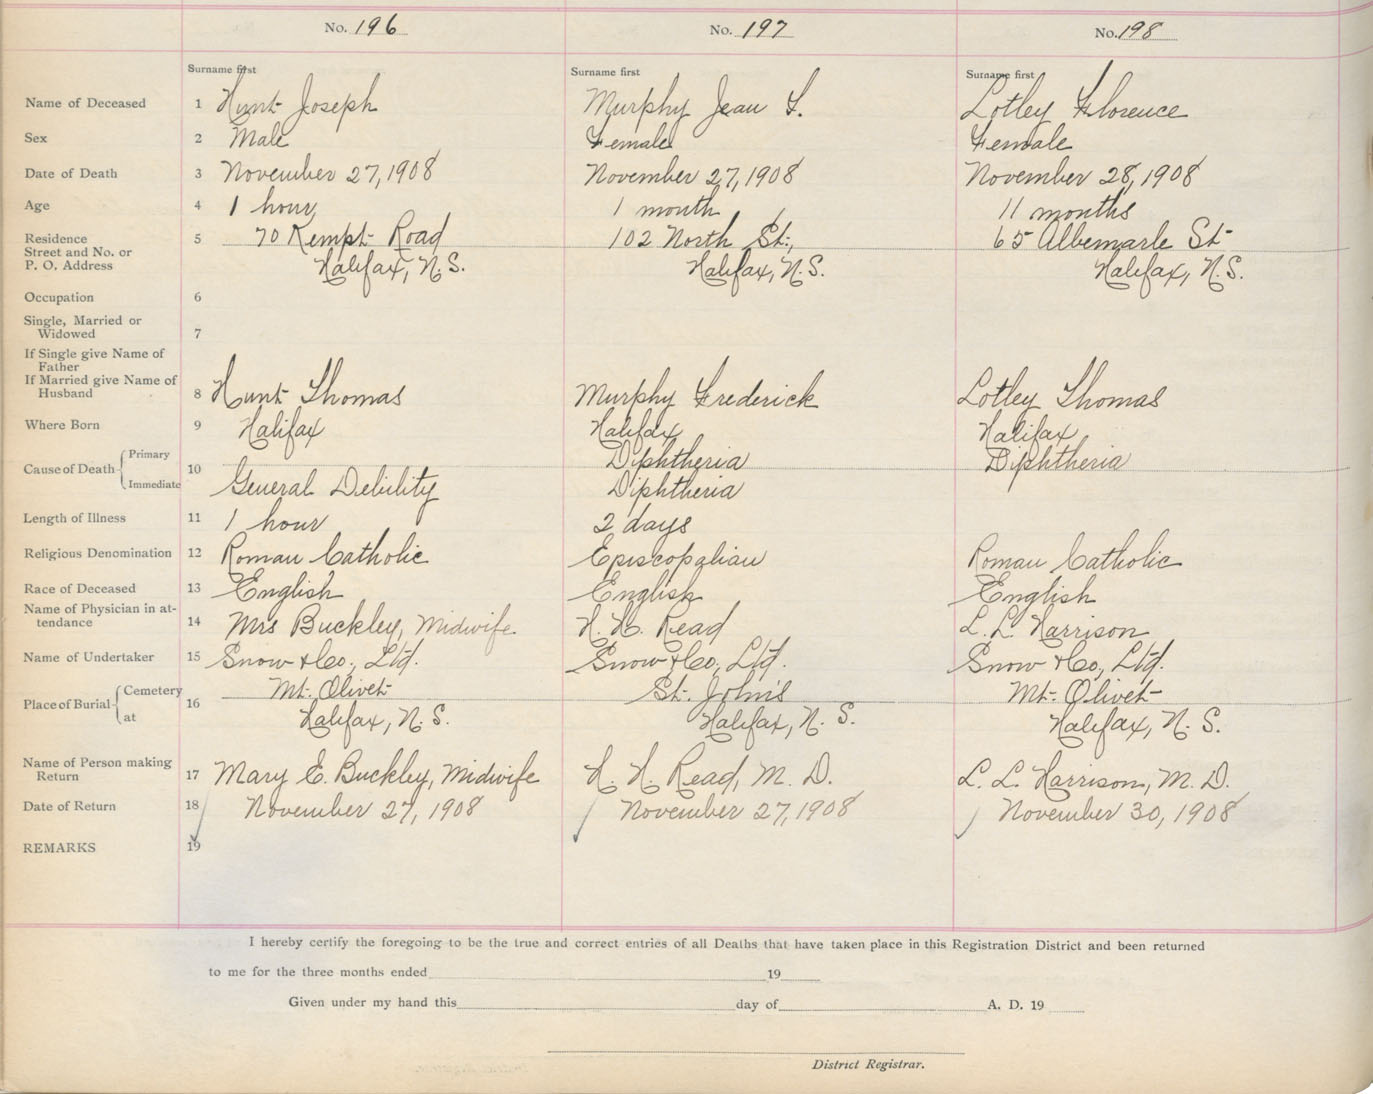 No. 196 No. 197 No. 198
Surname first Surname first Surname first
Name of Deceased 1 Hunt Joseph Murphy Jean F. Lotley Florence
Sex 2 Male Female Female
Date of Death 3 November 27, 1908 November 27, 1908 November 28, 1908
Age 4 1 hour 1 month 11 months
Residence 5 70 Kempt Road 102 North St., 65 Albemarle St
Street and No. or
P. O. Address Halifax, N. S. Halifax, N. S. Halifax, N. S.
Occupation 6
Single, Married or
Widowed 7
If Single give Name of
Father
If Married give Name of
Husband 8 Hunt Thomas Murphy Frederick Lotley Thomas
Where Born 9 Halifax Halifax Halifax
Primary Diphtheria Diphtheria
Cause of Death 10
Immediate General Debility Diphtheria
Length of Illness 11 1 hour 2 days
Religious Denomination 12 Roman Catholic Episcopalian Roman Catholic
Race of Deceased 13 English English English
Name of Physician in at-
tendance 14 Mrs Buckley, Midwife H. H. Read L. L. Harrison
Name of Undertaker 15 Snow & Co., Ltd. Snow & Co., Ltd. Snow & Co, Ltd.
Cemetery Mt. Olivet St. John's Mt. Olivet
Place of Burial 16
at Halifax, N. S. Halifax, N. S. Halifax, N. S.
Name of Person making
Return 17 Mary E. Buckley, Midwife H. H. Read, M. D. L. L. Harrison, M. D.
Date of Return 18 November 27, 1908 November 27, 1908 November 30, 1908
REMARKS 19
I hereby certify the foregoing to be the true and correct entries of all Deaths that have taken place in this Registration District and been returned
to me for the three months ended 19
Given under my hand this day of A. D. 19
District Registrar.